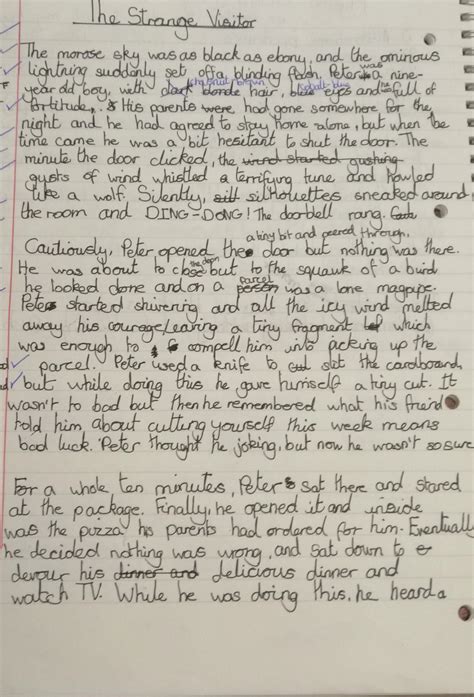 The Strange Visitor
The morose sky was as black as ebony, and the ominous
lightning suddenly set off a blinding flash. Peter was a nine-
year old boy, with dark chestnut brown blonde hair, cobalt-blue blue eyes and he was full of
fortitude, & His parents were had gone somewhere for the
night and he had agreed to stay home alone, but when the
time came he was a bit hesitant to shut the door. The
minute the door clicked, the wind started gushing
gusts of wind whistled a terrifying tune and howled
like a wolf. Silently, sill silhouettes sneaked around
the room and DING-DONG! The doorbell rang.
a tiny bit and peered through,
Cautiously, Peter opened the door but nothing was there.
He was about to close the door but, to the squawk of a bird
he looked done and on a person parcel was a lone magpipe.
Peter started shivering and all the icy wind melted
away his courage, leaving a tiny fragment of which
was enough to compell him into picking up the
parcel. Peter used a knife to cut the cardboard,
but while doing this he gave himself a tiny cut. It
wasn't to bad but then he remembered what his friend
told him about cutting yourself this week means
bad luck. Peter thought he joking, but now he wasn't so sure
For a whole ten minutes, Peter sat there and stared
at the package. Finally, he opened it and inside
was the pizza his parents had ordered for him. Eventually
he decided nothing was wrong, and sat down to
devour his dinner and delicious dinner and
watch TV. While he was doing this, he heard a